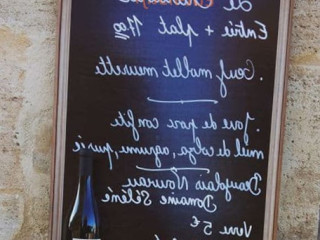 Entrée + plat 11,00
. Oeuf mollet meurette
. Joue de porc confite
miel de colza, agrume, purée
Beaujolais Nouveau
Domaine Sélène
Verre 5€